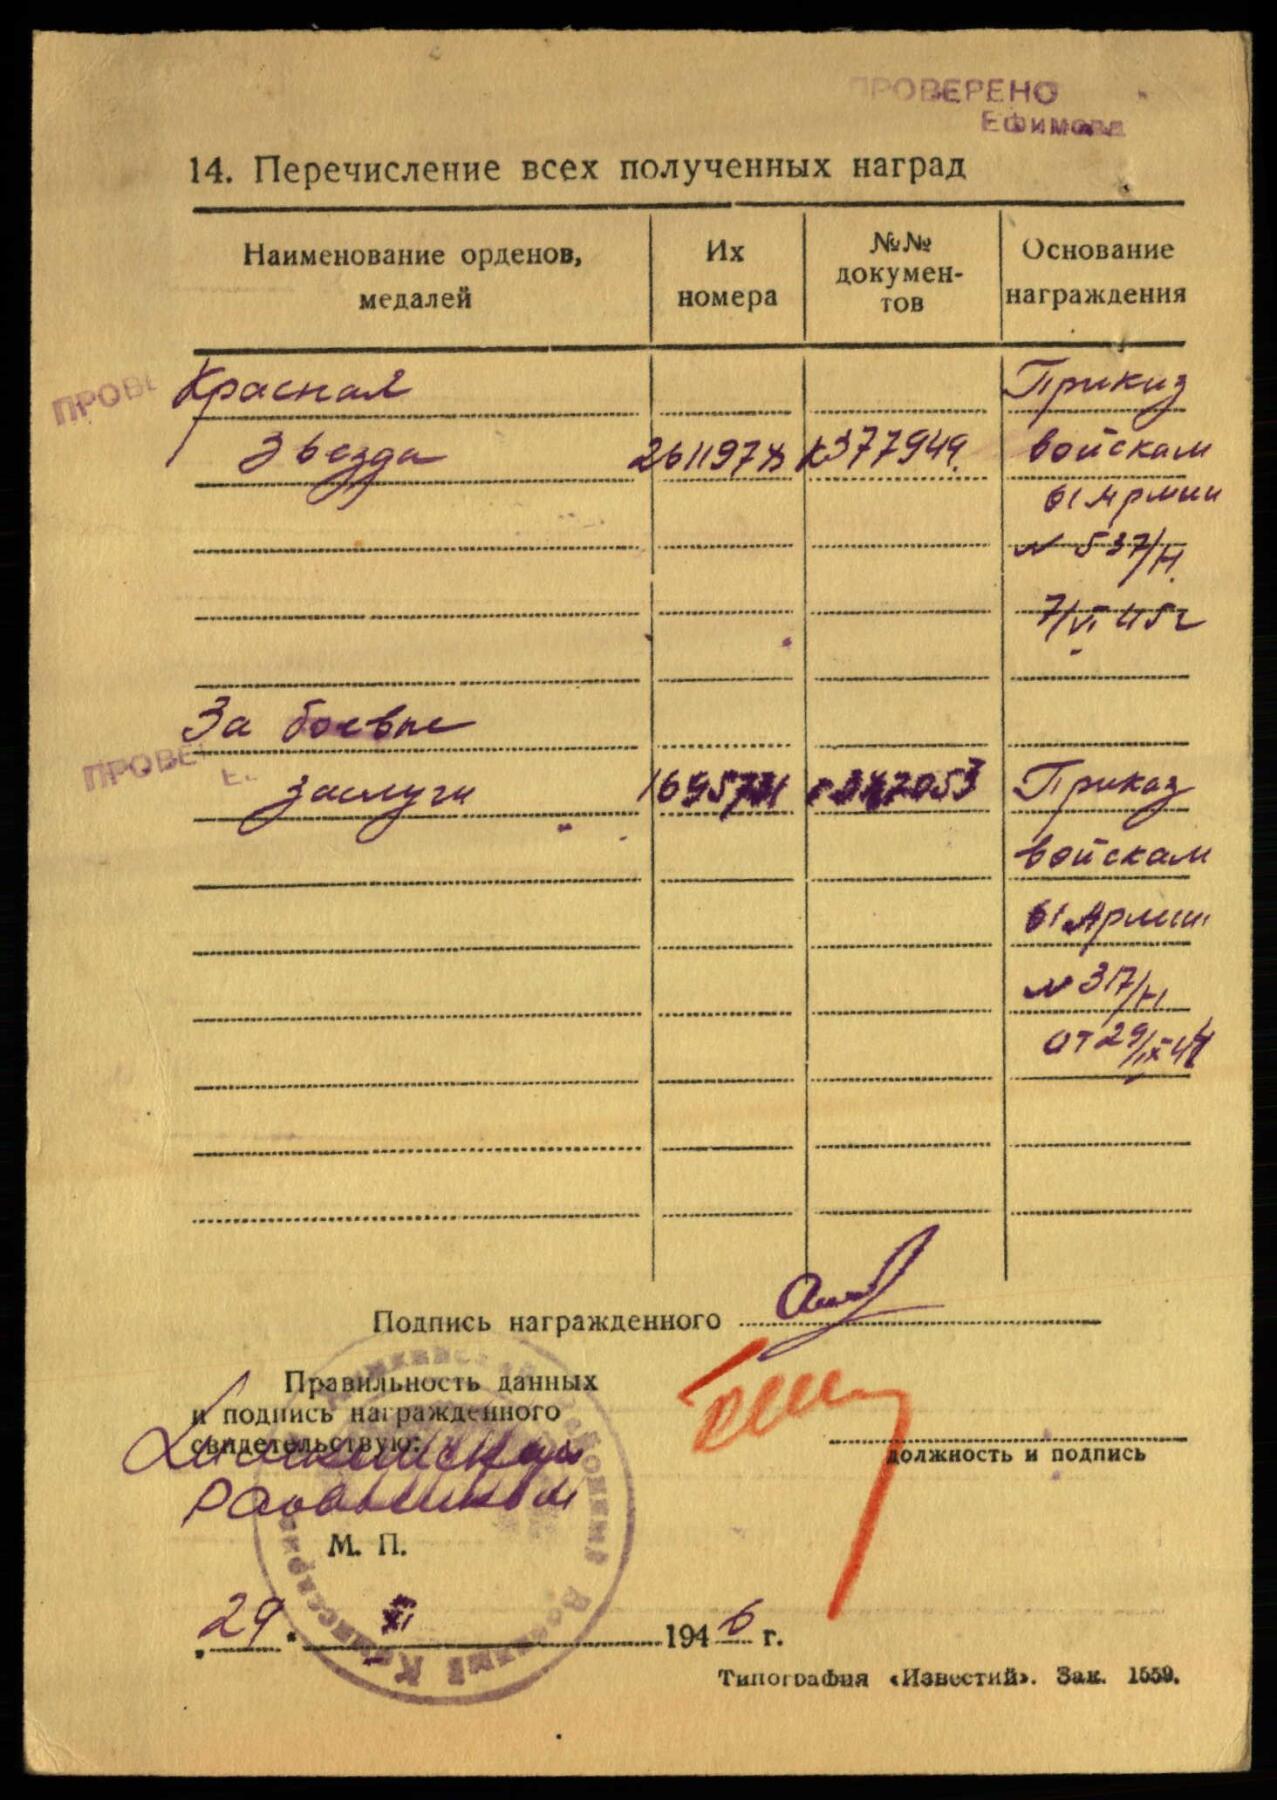 ПРОВЕРЕНО
Ефимова
14. Перечисление всех полученных наград
Наименование орденов, медалей
Их номера
№№ докумен-тов
Основание награждения
ПРОВЕ
Красная
Приказ
Звезда
к377949.
войскам
61 Армии
N 537/н
7/VI 45г
За боевые
ПРОВЕ
заслуги
Приказ
войскам
61 Армии
N 317/н
от 29/IX 44
Подпись награжденного
Правильность данных
и подпись награжденного
свидетельствую:
должность и подпись
М. П.
„29" XI 1946 г.
Типография «Известий». Зак. 1559.